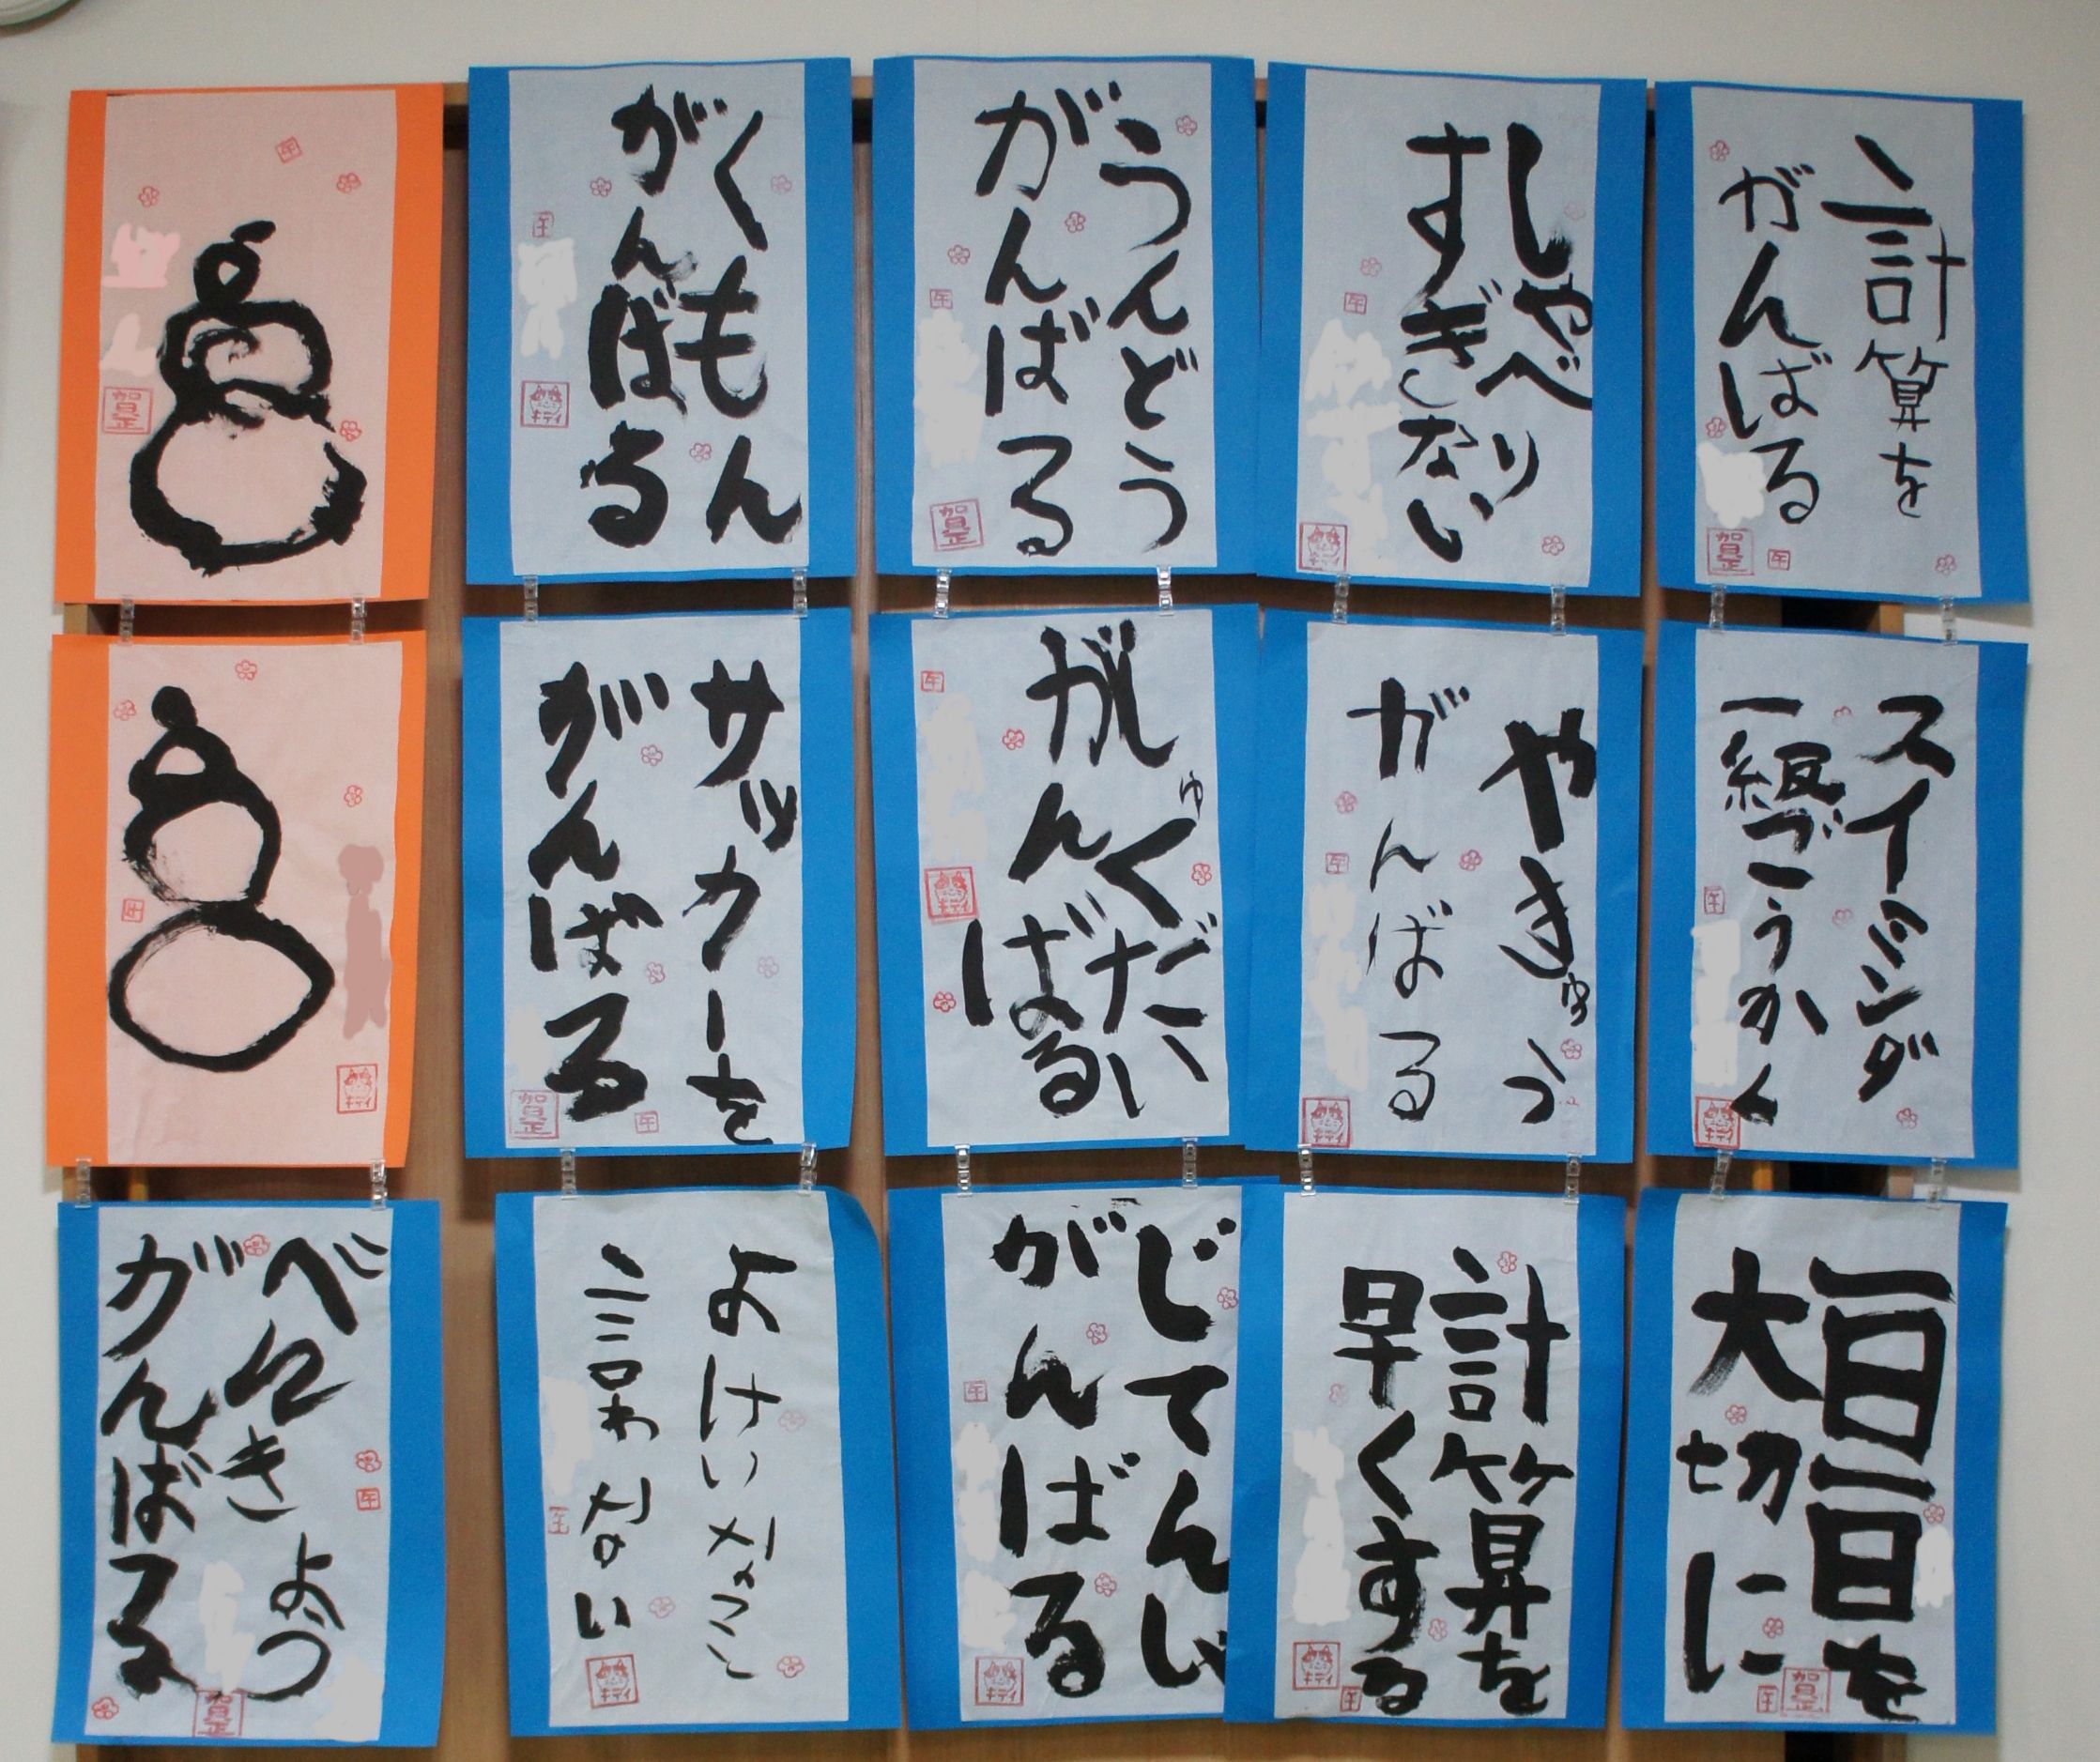 計算を
がんばる
しゃべり
すぎない
うんどう
がんばる
くもん
がんばる
スイミング
一級ごうかく
やきゅう
がんばる
しゅくだい
がんばる
サッカーを
がんばる
一日一日を
大切に
計算を
早くする
じてんしゃ
がんばる
よけいなこと
言わない
べんきょう
がんばる